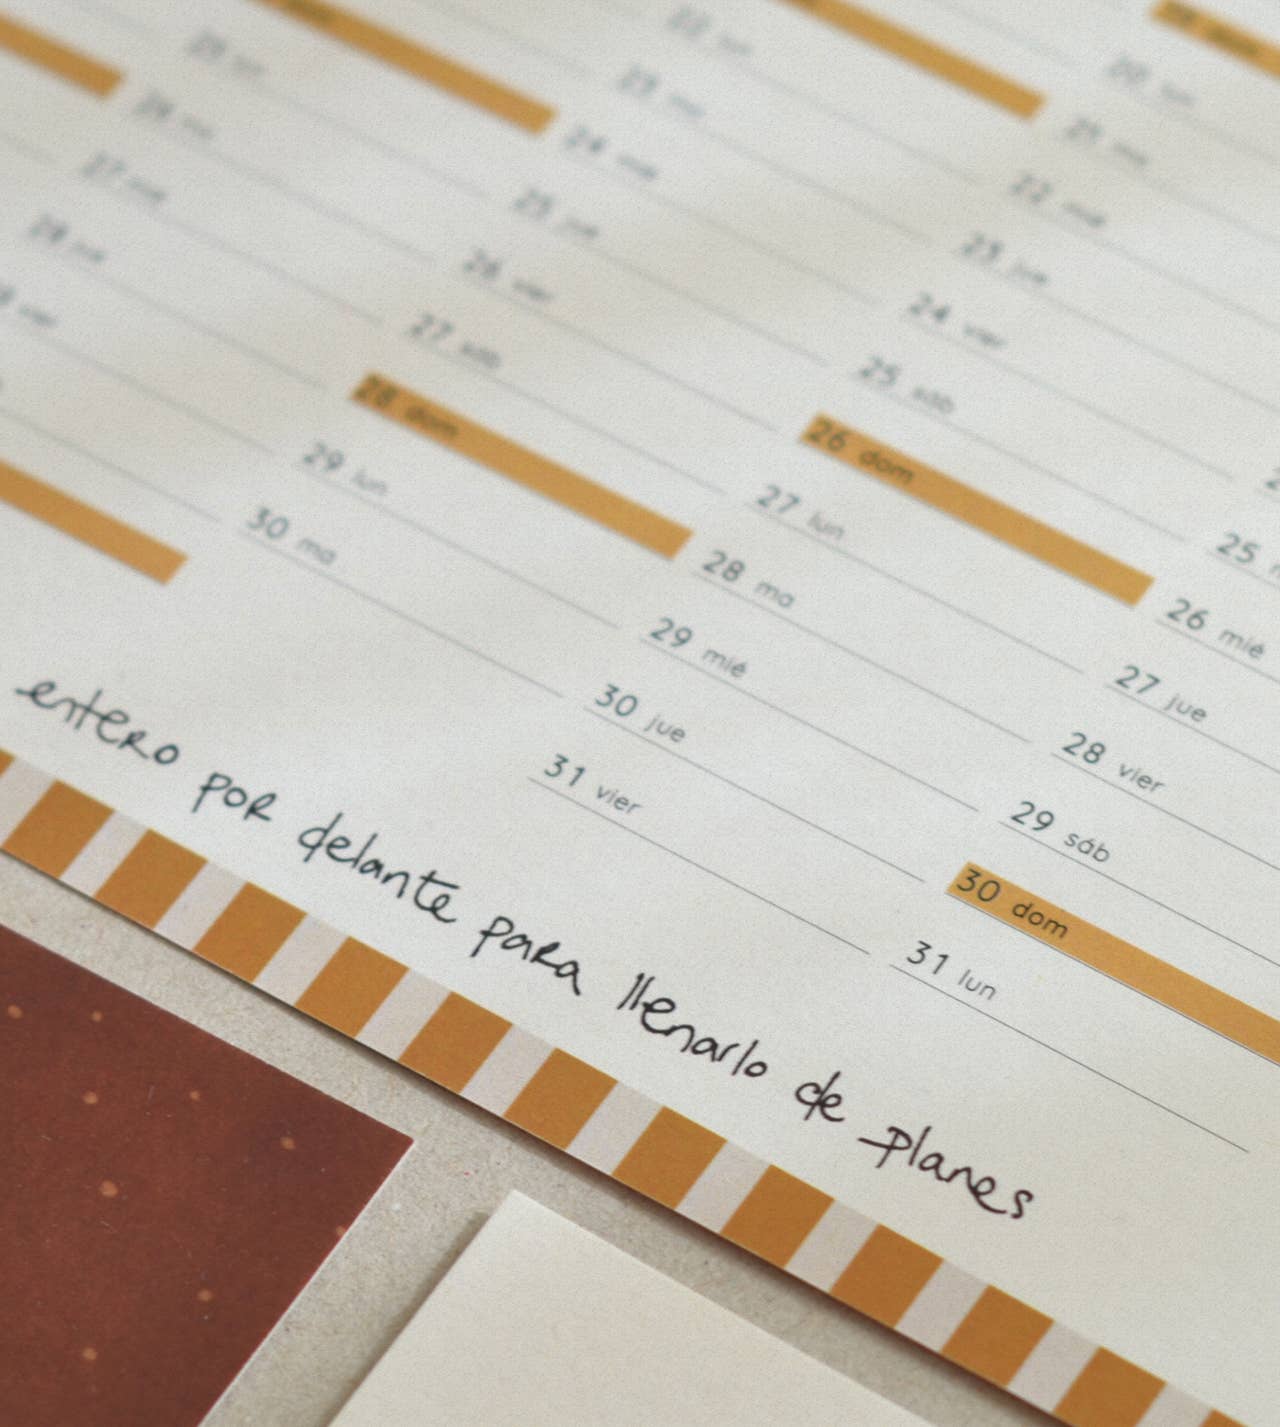 25 lun
26 ma
27 mié
28 jue
vier
22 lun
23 ma
24 mié
25 jue
26 vier
27 sáb
28 dom
29 lun
30 ma
20 lun
21 ma
22 mié
23 jue
24 vier
25 sáb
26 dom
27 lun
28 ma
29 mié
30 jue
31 vier
25
26 mié
27 jue
28 vier
29 sáb
30 dom
31 lun
entero por delante para llenarlo de planes